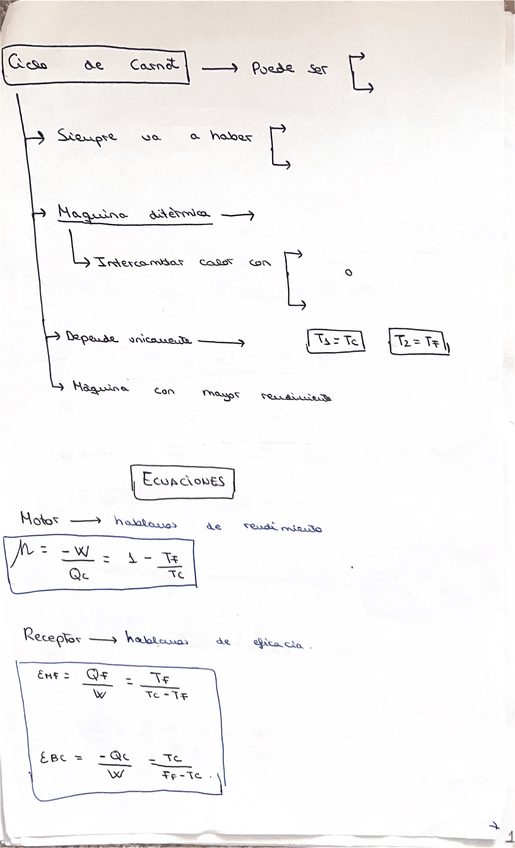 Ciclo de Carnot → Puede ser
Siempre va a haber
Maquina ditérmica →
Intercambiar calor con
o
Depende unicamente → T1 = Tc T2 = TF
Máquina con mayor rendimiento
ECUACIONES
Motor → hablamos de rendimiento
η = -W/Qc = 1 - TF/Tc
Receptor → hablamos de eficacia.
εMF = QF/W = TF/(Tc - TF)
εBC = -Qc/W = Tc/(FF - Tc).
1